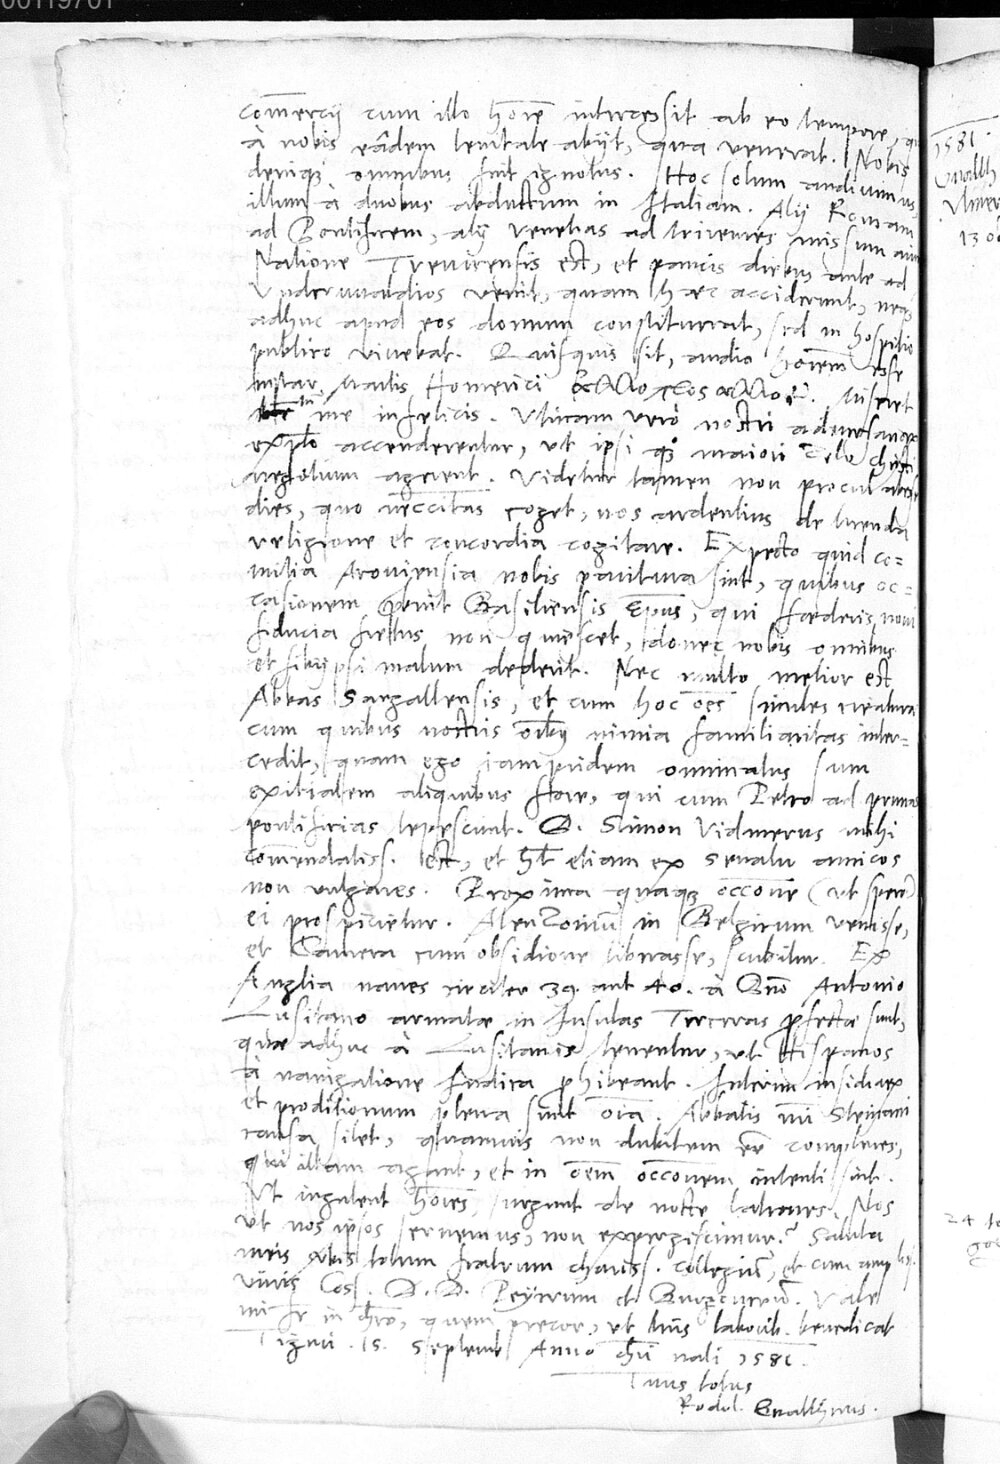 00119701
com̅ercij cum illo ho̅i̅e intercessit ab eo tempore, qu
à nobis eâdem levitate abijt, qua venerat. Nobis
deniq; omnibus fuit ignotus. Hoc solum audivimus,
illum à duobus abductum in Italiam. Alij Romam
ad Pontificem, alij Venetias ad missum aiu
Natione Trevirensis est, et paucis diebus ante ad
venit, quam haec acciderent, neq;
adhuc apud eos domum constituerat, sed in hospitio
publico vivebat. Quisquis sit, audio ho̅i̅em esse
instar Martis Homerici ἀλλοπρόσαλλος. Miseret
me infelicis. Utinam vero nostri
exe̅plo accenderentur, ut ipsi q; maiori zelo
negotium agerent. Videtur tamen non procul abesse
dies, quo necessitas coget, nos ardentius de tuenda
religione et concordia cogitare. Expecto quid co=
mitia Arovensia nobis paritura sint, quibus oc=
casionem Basiliensis Ep̅us, qui foederis novi
fiducia fretus non quiescet, donec nobis omnibus
et sibijpsi malum dederit. Nec multo melior est
Abbas Sangallensis, et cum hoc o̅e̅s similes
cum quibus nostris nimia familiaritas inter=
cedit, quam ego iampridem ominatus sum
exitialem aliquibus fore, qui cum Petro ad prunas
pontificias tepescunt. D. Simon Vidmerus mihi
com̅endatiss. est, et h̅t etiam ex Senatu amicos
non vulgares. Proxima quaq; occ̅o̅n̅e (ut spero)
ei prospicietur. Alenzonium in Belgicum venisse,
et Camera cum obsidione liberasse, scribitur. Ex
Anglia naves circiter 39. aut 40. à Antonio
Lusitano armatae in Insulas Terceras profectae sunt,
quae adhuc à Lusitanis tenentur, ut Hispanos
à navigatione Indica prohibeant. Interim insidiar̅
et proditionum plena sunt o̅i̅a. Abbatis
causa silet, quamvis non dubitem e̅e̅ complures,
qui illam agant, et in o̅e̅m occ̅onem intenti sint.
Ut iugulent ho̅i̅es, surgunt de nocte latrones. Nos
ut nos ipsos servemus, non expergiscimur? Saluta
meis verbis totum fratrum chariss. collegiu̅, et cum ampliss.
viris Coss. D. D.
mi fr̅ in chr̅o, quem precor, ut tuis laborib. benedicat
Tiguri. 15. Septemb Anno chr̅i nati 1581.
Tuus totus
Rodol. Gualtherus.
1581
13
24